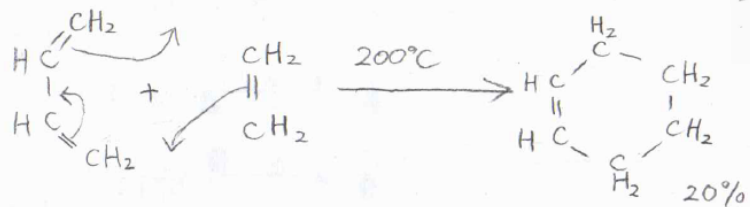 CH2
HC
+
HC
CH2
CH2
||
CH2
200°C
H2
C
HC
||
HC
C
H2
CH2
CH2
20%